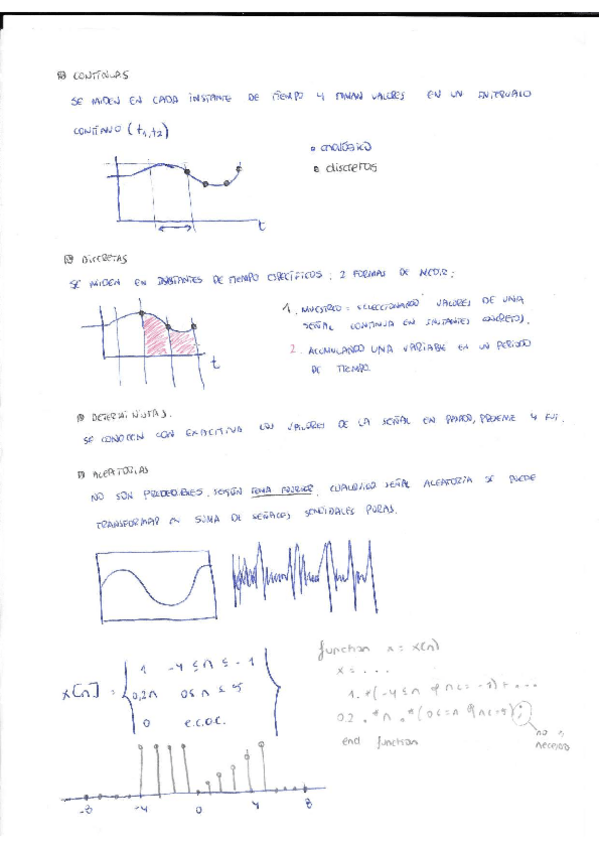 CONTINUAS
SE MIDEN EN CADA INSTANTE DE TIEMPO Y TOMAN VALORES EN UN INTERVALO
CONTINUO (t1,t2)
analógico
discretos
t
DISCRETAS
SE MIDEN EN INSTANTES DE TIEMPO ESPECÍFICOS. 2 FORMAS DE MEDIR:
1. MUESTREO: SELECCIONANDO VALORES DE UNA
SEÑAL CONTINUA EN INSTANTES CONCRETOS.
2. ACUMULANDO UNA VARIABLE EN UN PERIODO
DE TIEMPO.
t
DETERMINISTAS.
SE CONOCEN CON EXACTITUD LOS VALORES DE LA SEÑAL EN PASADO, PRESENTE Y FUT.
ALEATORIAS
NO SON PREDECIBLES. SEGÚN FOURIER, CUALQUIER SEÑAL ALEATORIA SE PUEDE
TRANSFORMAR EN SUMA DE SEÑALES SENOIDALES PURAS.
x[n] =
1 -4 ≤ n ≤ -1
0,2n 0 ≤ n ≤ 5
0 e.c.o.c.
function x = x(n)
x = ...
1.*(-4 ≤ n & n <= -1) + ...
0.2 .* n .* (0 <= n & n <= 5);
end function
-8 -4 0 4 8